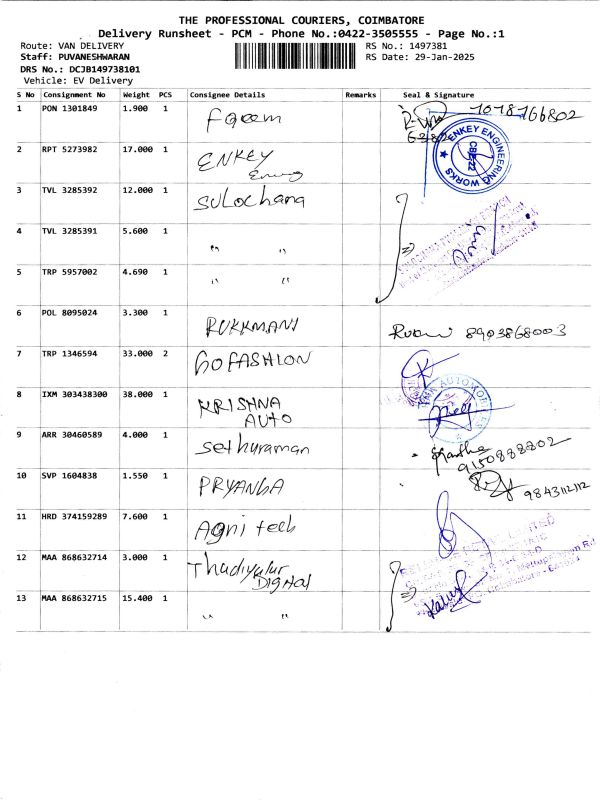 THE PROFESSIONAL COURIERS, COIMBATORE
Delivery Runsheet - PCM - Phone No.:0422-3505555 - Page No.:1
Route: VAN DELIVERY RS No.: 1497381
Staff: PUVANESHWARAN RS Date: 29-Jan-2025
DRS No.: DCJB149738101
Vehicle: EV Delivery
S No Consignment No Weight PCS Consignee Details Remarks Seal & Signature
1 PON 1301849 1.900 1 Faeem
2 RPT 5273982 17.000 1 ENKEY ENKEY ENGINEERING WORKS
3 TVL 3285392 12.000 1 SULOchana
4 TVL 3285391 5.600 1 " "
5 TRP 5957002 4.690 1 " "
6 POL 8095024 3.300 1 RUKKMANI 8903868003
7 TRP 1346594 33.000 2 GOFASHION
8 IXM 303438300 38.000 1 KRISHNA AUTO
9 ARR 30460589 4.000 1 Sethuraman 9150888802
10 SVP 1604838 1.550 1 PRYANGA
11 HRD 374159289 7.600 1 Agni tech
12 MAA 868632714 3.000 1 Thudiyalur DIGItAl
13 MAA 868632715 15.400 1 " "